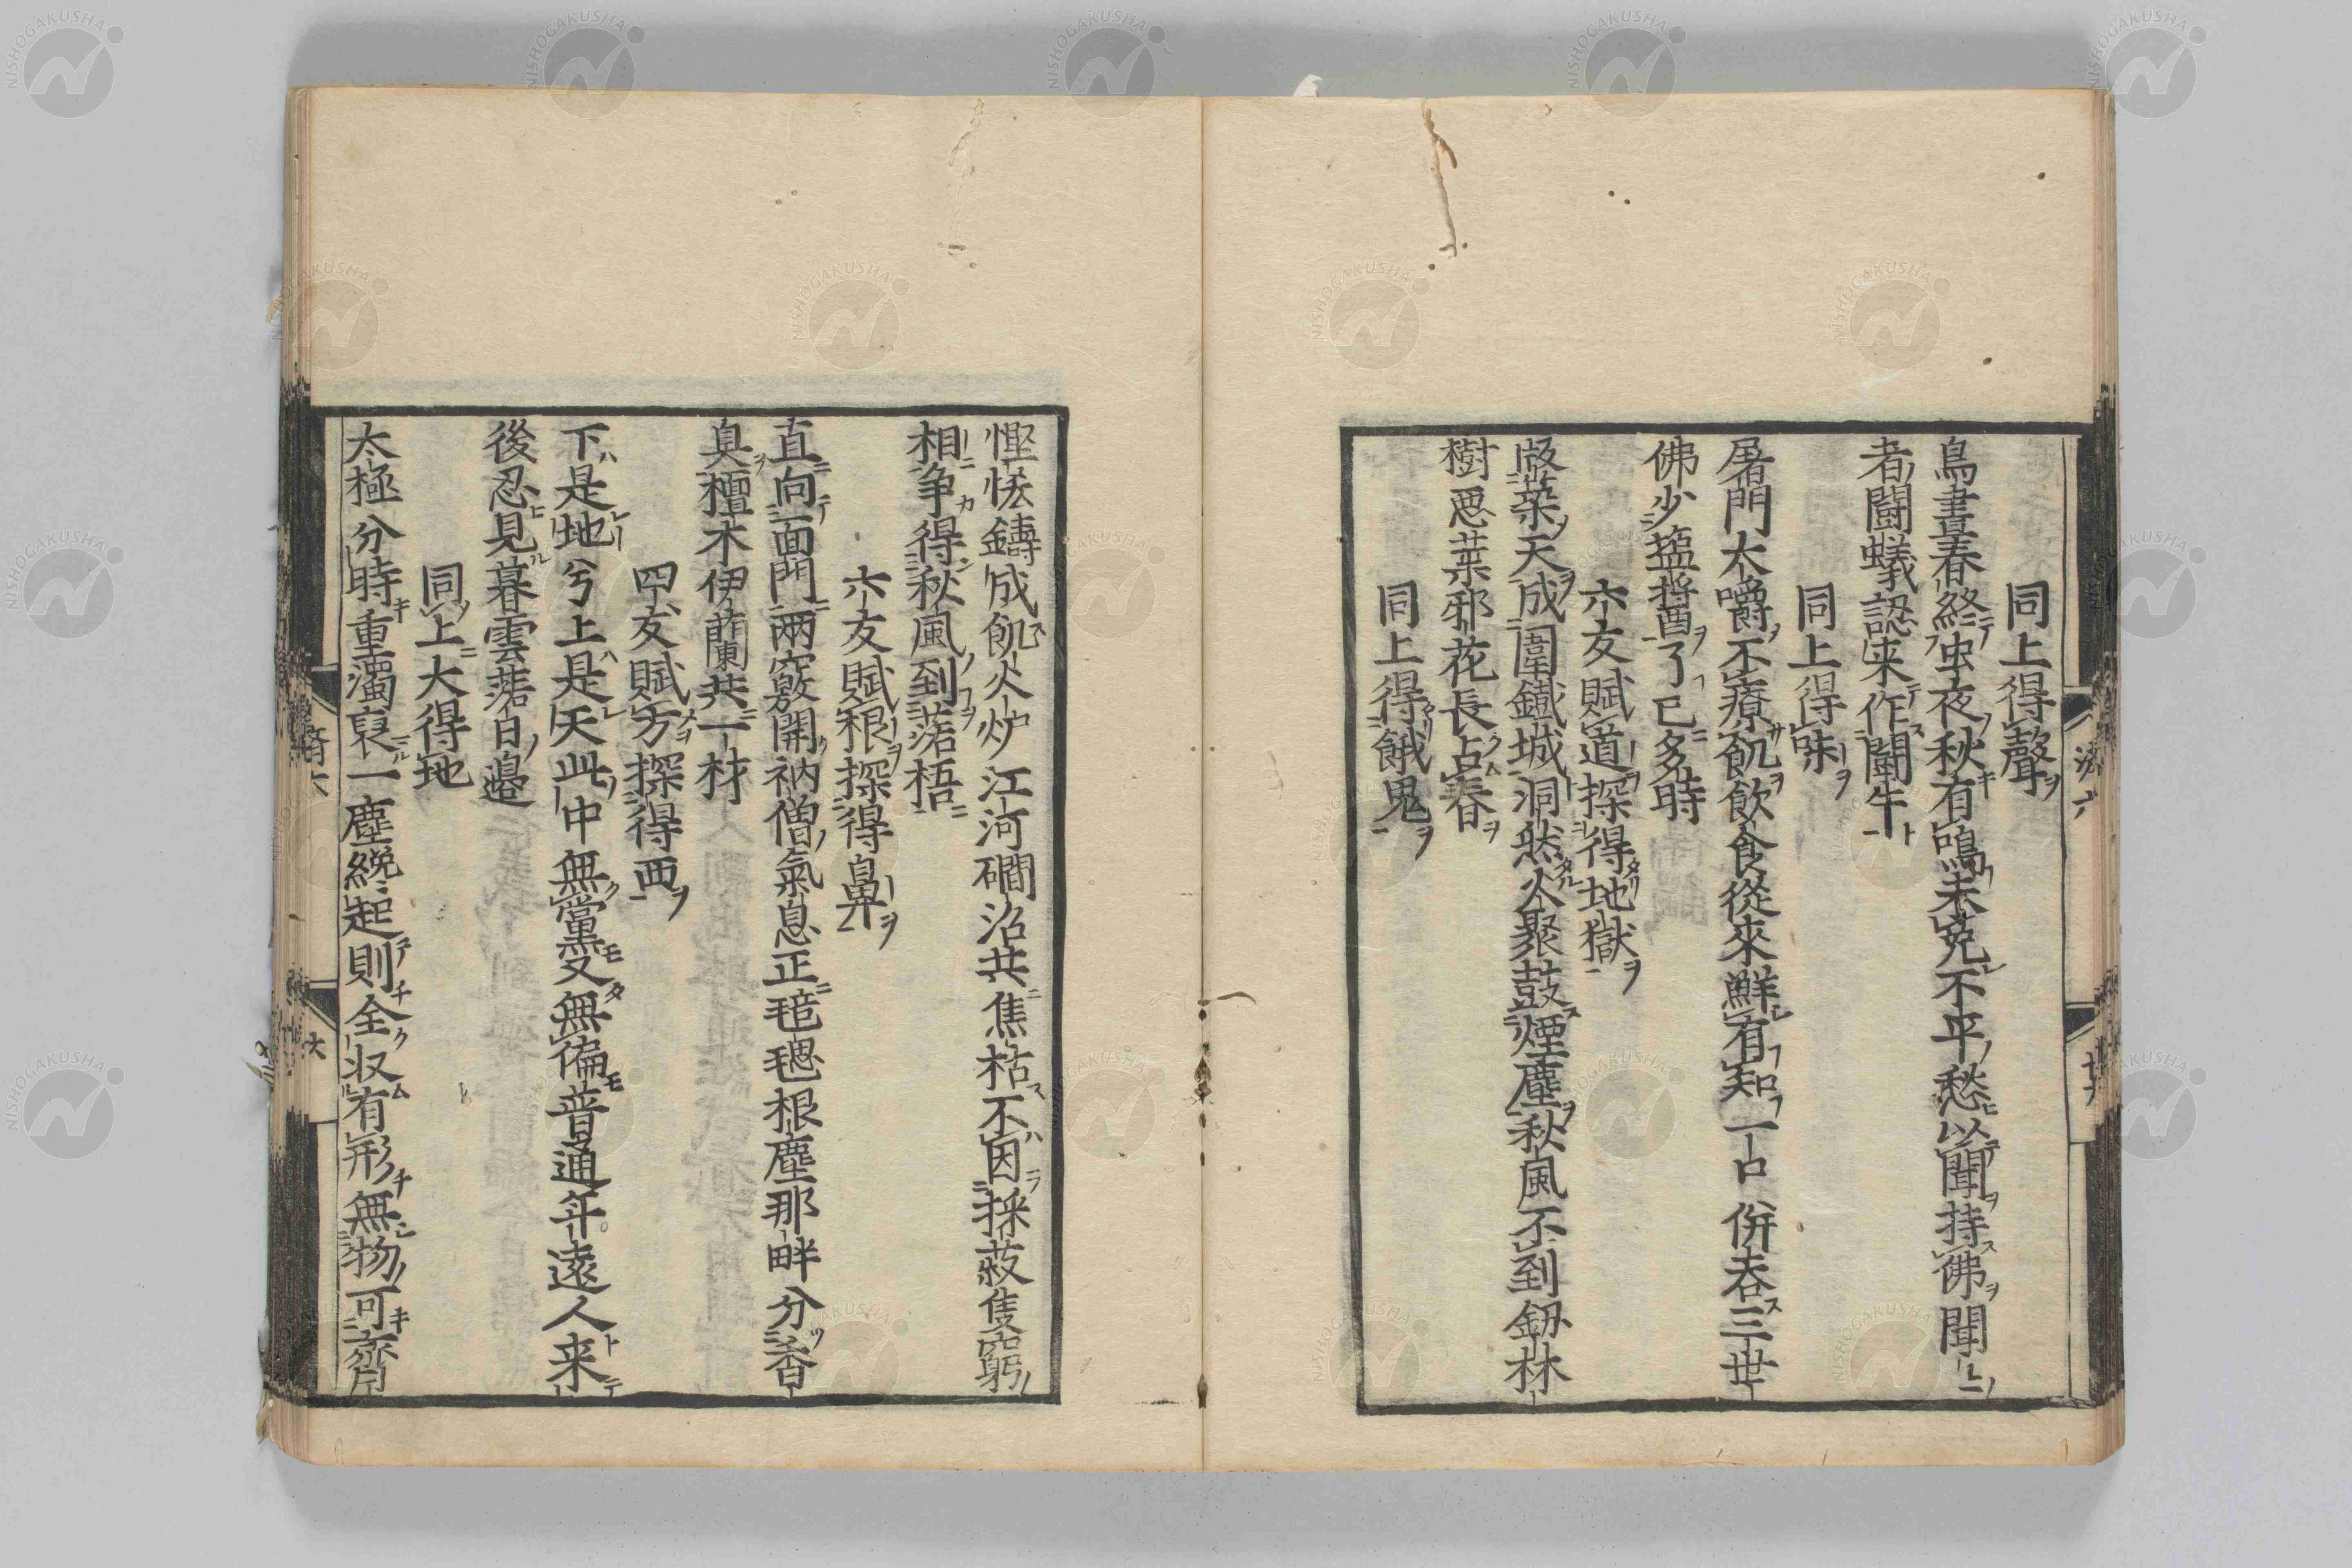 同上得聲
鳥晝春終虫夜秋有鳴未免不平愁以聞持佛聞〻
者鬪蟻認来作鬪牛
同上得味
屠門大嚼不療飢飲食從來鮮有知一口併吞三世
佛少塩醤了已多時
六友賦道探得地獄
版業天成圍鐵城洞然火聚鼓煙塵秋風不到釼林
樹悪葉邪花長占春
同上得餓鬼
慳恡鑄成飢火炉江河磵沼共焦枯不因採蔌隻窮
相争得秋風到落梧
六友賦根探得鼻
直向面門兩竅開衲僧氣息正毰毸根塵那畔分香
臭檀木伊蘭共一材
四友賦方探得西
下是地兮上是天此中無黨又無偏普通年遠人来
後忍見暮雲落日邉
同上大得地
太極分時重濁裒一塵纔起則全収有形無物可齊
NISHOGAKUSHA